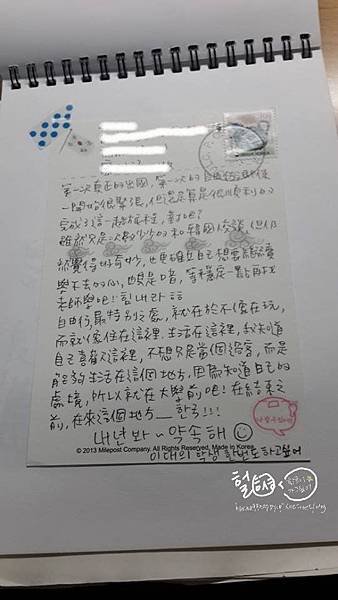 第一次真正的出國,第一次的自由行,即使
一開始很緊張,但還是算是很順利的
完成了這一趟旅程,對吧?
雖然只是一次次少少的和韓國人交談,但仍
就覺得好奇妙,也更確立自己想要繼續
學下去的心,也是唷,等穩定一點再找
老師學吧!힘내라
自由行最特別之處,就在於不像在玩,
而就像住在這裡.生活在這裡,我知道
自己喜歡這裡,不想只是當個過客,而是
能夠生活在這個地方,因為知道自己的
處境,所以就在大學前吧!在結束之
前,在來這個地方 한국!!!
내년 봐~ 약속해
© 2013 Milepost Company. All Rights Reserved. Made in Korea
이대의 학생
하고싶어